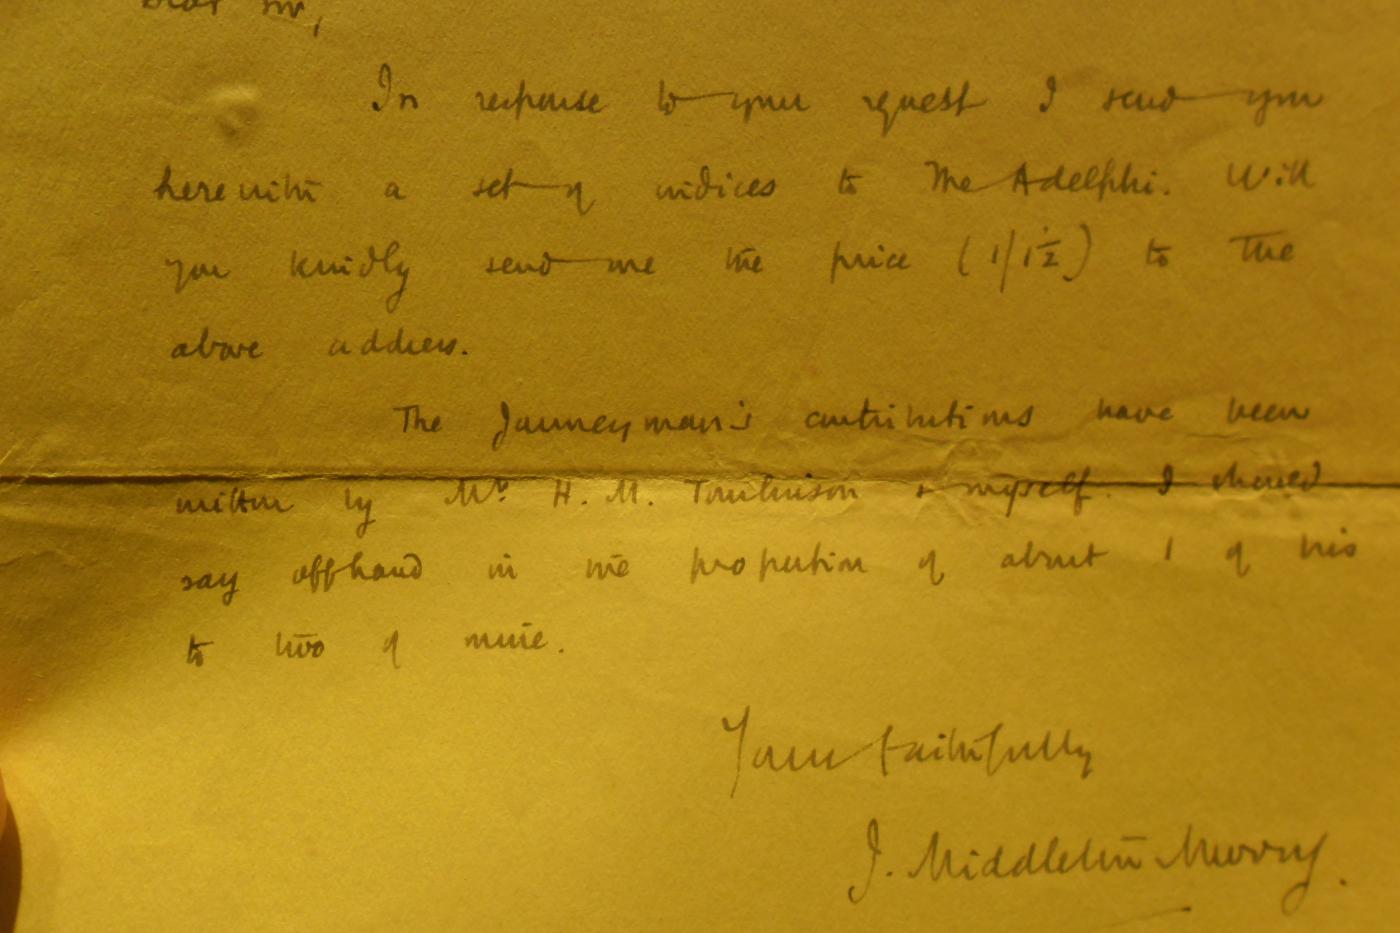 Dear Sir,
In response to your request I send you
herewith a set of indices to The Adelphi. Will
you kindly send me the price (1/1½) to the
above address.
The Journeyman's contributions have been
written by Mr H. M. Tomlinson & myself. I should
say offhand in the proportion of about 1 of his
to two of mine.
Yours faithfully
J. Middleton Murry.